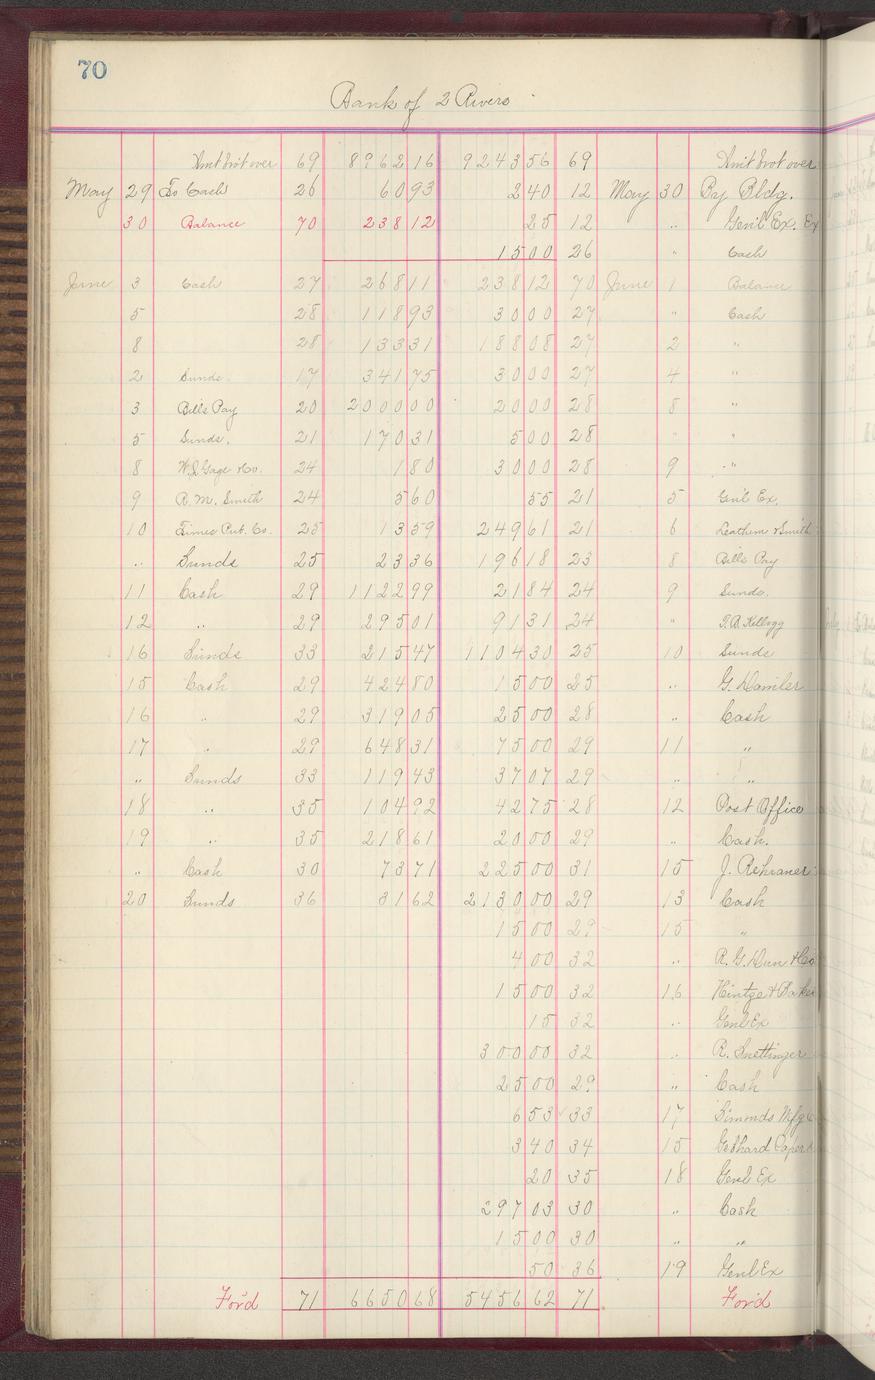 70
Bank of 2 Rivers
Amt brot over 69 8962 16 9243 56 69 Amt brot over
May 29 To Cash 26 60 93 2 40 12 May 30 By Bldg.
30 Balance 70 238 12 25 12 " Genl Ex. Ex
15 00 26 " Cash
June 3 Cash 27 268 11 238 12 70 June 1 Balance
5 28 118 93 30 00 27 " Cash
8 28 133 31 188 08 27 2 "
2 Sunds. 17 341 75 30 00 27 4 "
3 Bills Pay 20 2000 00 20 00 28 8 "
5 Sunds. 21 170 31 5 00 28 " "
8 W.J. Gage & Co. 24 1 80 30 00 28 9 "
9 R. M. Smith 24 5 60 55 21 5 Genl Ex.
10 Times Pub. Co. 25 13 59 249 61 21 6 Leathem & Smith
" Sunds 25 23 36 196 18 23 8 Bills Pay
11 Cash 29 1122 99 21 84 24 9 Sunds.
12 " 29 295 01 91 31 24 " Kellogg
16 Sunds 33 215 47 1104 30 25 10 Sunds
15 Cash 29 424 80 15 00 25 " G. Damler
16 " 29 319 05 25 00 28 " Cash
17 " 29 648 31 75 00 29 11 "
" Sunds 33 119 43 37 07 29 " "
18 " 35 104 92 42 75 28 12 Post Office
19 " 35 218 61 20 00 29 " Cash.
" Cash 30 73 71 225 00 31 15 J.
20 Sunds 36 31 62 2130 00 29 13 Cash
15 00 29 15 "
4 00 32 " R. G. Dun & Co
15 00 32 16 Hintze & Baker
15 32 " Genl Ex
300 00 32 " R. Suettinger
25 00 29 " Cash
6 53 33 17 Simonds Mfg C
3 40 34 15 Gebhard Paper
20 35 18 Genl Ex
297 03 30 " Cash
15 00 30 " "
50 36 19 Genl Ex
For'd 71 6650 68 5456 62 71 For'd